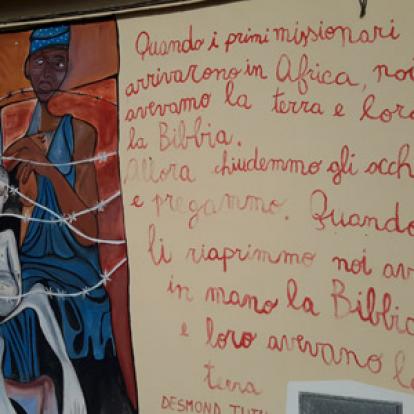 Quando i primi missionari
arrivarono in Africa, noi
avevamo la terra e loro
la Bibbia.
Allora chiudemmo gli occh
e pregammo. Quando
li riaprimmo noi av
in mano la Bibbia
e loro avevano l
terra
DESMOND TUTU